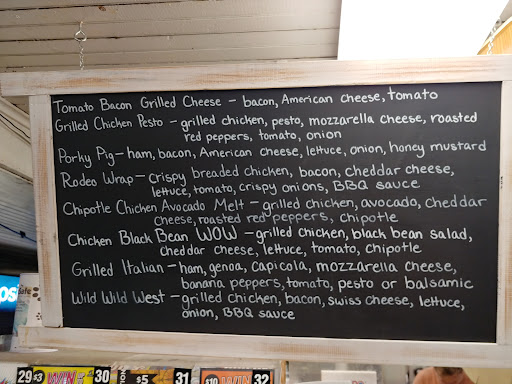 Tomato Bacon Grilled Cheese - bacon, American cheese, tomato
Grilled Chicken Pesto - grilled chicken, pesto, mozzarella cheese, roasted
red peppers, tomato, onion
Porky Pig - ham, bacon, American cheese, lettuce, onion, honey mustard
Rodeo Wrap - crispy breaded chicken, bacon, cheddar cheese,
lettuce, tomato, crispy onions, BBQ sauce
Chipotle Chicken Avocado Melt - grilled chicken, avocado, cheddar
cheese, roasted red peppers, chipotle
Chicken Black Bean WOW - grilled chicken, black bean salad,
cheddar cheese, lettuce, tomato, chipotle
Grilled Italian - ham, genoa, capicola, mozzarella cheese,
banana peppers, tomato, pesto or balsamic
Wild Wild West - grilled chicken, bacon, swiss cheese, lettuce,
onion, BBQ sauce
29 $3 WIN 30 $5 31 $10 WIN 32